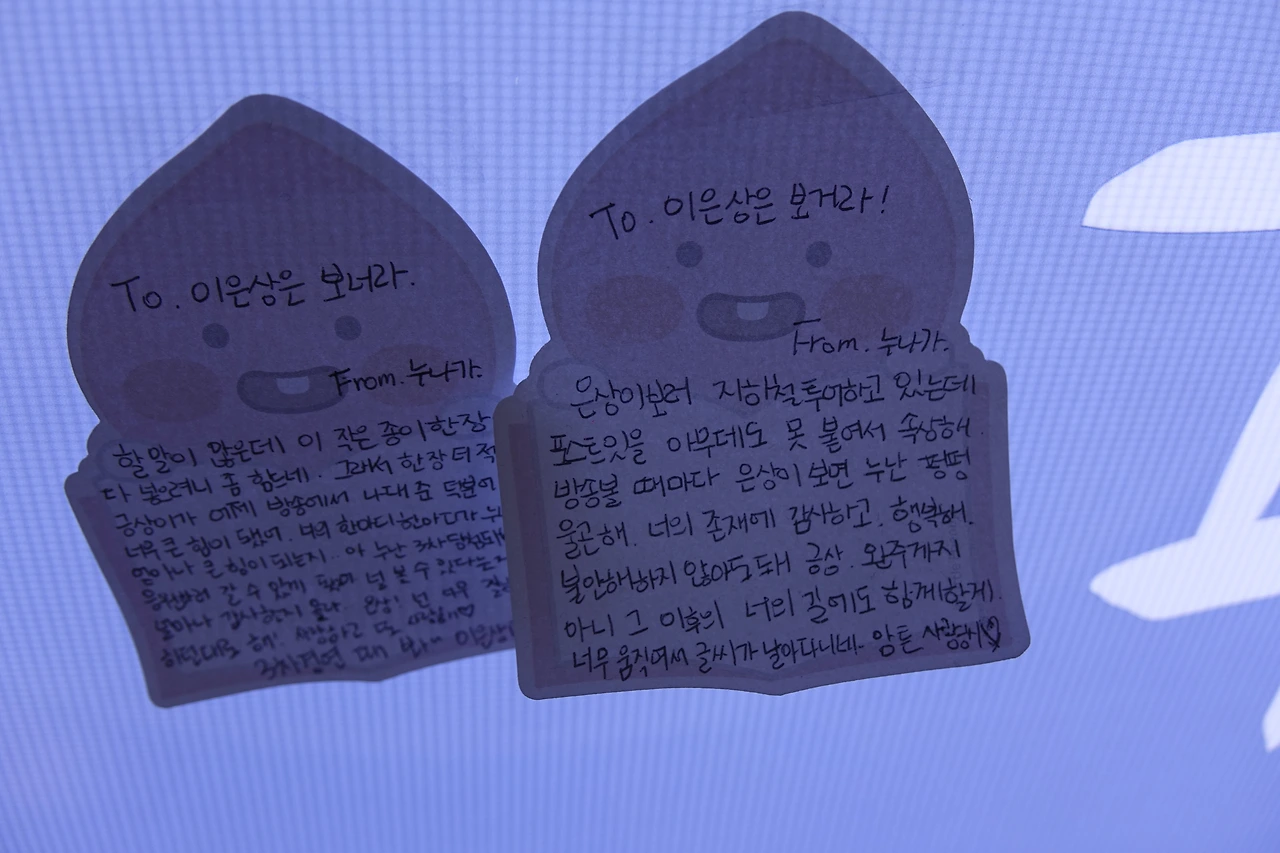 To. 이은상은 보너라.
From. 누나가.
할 말이 많은데 이 작은 종이 한장
다 넣으려니 좀 힘드네. 그래서 한장 더 적
금상이가 어제 방송에서 나대준 덕분에
너무 큰 힘이 됐어. 너의 한마디 한마디가 누
얼마나 큰 힘이 되는지.. 아 누난 3차
갈 수 있게 널 볼 수 있다는
얼마나 감사한지 몰라.
하던대로 해! 사랑하고 또 사랑해♡
3차경연 때 봐~
To. 이은상은 보거라!
From. 누나가.
은상이보러 지하철투어하고 있는데
포스트잇을 아무데도 못 붙여서 속상해.
방송볼 때마다 은상이 보면 누난 펑펑
울곤해. 너의 존재에 감사하고, 행복해.
불안해하지 않아도돼 금상. 완주까지
아니 그 이후의 너의 길에도 함께할게.
너무 움직여서 글씨가 날아다니네.. 암튼 사랑해♡